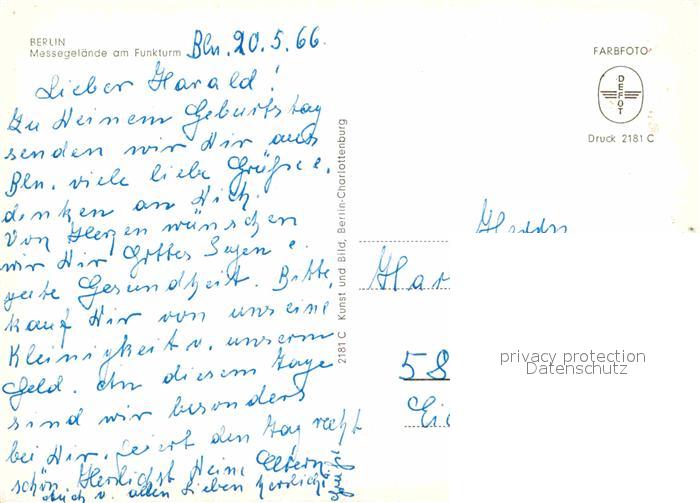 BERLIN
Messegelände am Funkturm
Bln. 20.5.66.
Lieber Harald!
Zu Deinem Geburtstag
senden wir Dir aus
Bln. viele liebe Grüße u.
denken an Dich.
Von Herzen wünschen
wir Dir Gottes Segen u.
gute Gesundheit. Bitte,
kauf Dir von uns eine
Kleinigkeit v. unserm
Geld. An diesem Tage
sind wir besonders
bei Dir. Feiert den Tag recht
schön. Herzlichst Deine Eltern
Auch v. allen Lieben herzliche
Grüße
2181 C Kunst und Bild, Berlin-Charlottenburg
FARBFOTO
DEFOT
Druck 2181 C
Herrn
Har
58
privacy protection
Datenschutz